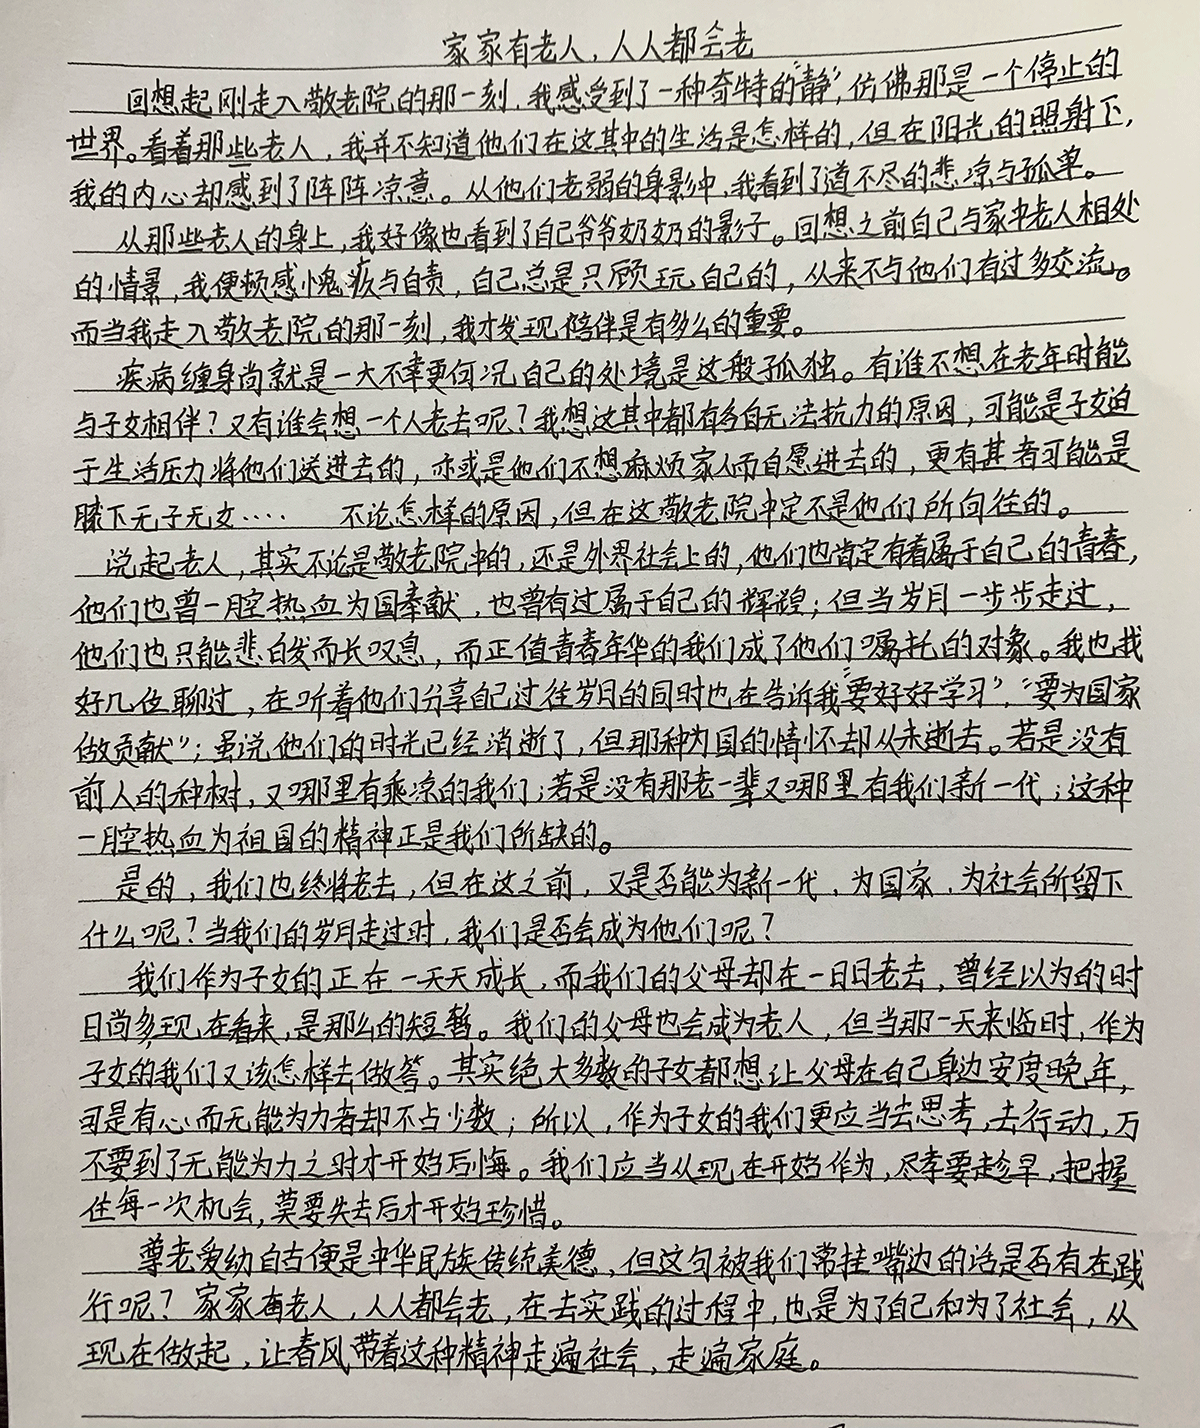 家家有老人，人人都会老
回想起刚走入敬老院的那一刻，我感受到了一种奇特的“静”，仿佛那是一个停止的
世界。看着那些老人，我并不知道他们在这其中的生活是怎样的，但在阳光的照射下，
我的内心却感到了阵阵凉意。从他们老弱的身影中，我看到了道不尽的悲凉与孤单。
从那些老人的身上，我好像也看到了自己爷爷奶奶的影子。回想之前自己与家中老人相处
的情景，我便顿感愧疚与自责，自己总是只顾玩自己的，从来不与他们有过多交流。
而当我走入敬老院的那一刻，我才发现陪伴是有多么的重要。
疾病缠身尚就是一大不幸更何况自己的处境是这般孤独。有谁不想在老年时能
与子女相伴？又有谁会想一个人老去呢？我想这其中都有各自无法抗力的原因，可能是子女迫
于生活压力将他们送进去的，亦或是他们不想麻烦家人而自愿进去的，更有甚者可能是
膝下无子无女····  不论怎样的原因，但在这敬老院中定不是他们所向往的。
说起老人，其实不论是敬老院中的，还是外界社会上的，他们也肯定有着属于自己的青春，
他们也曾一腔热血为国奉献，也曾有过属于自己的辉煌；但当岁月一步步走过，
他们也只能悲白发而长叹息，而正值青春年华的我们成了他们嘱托的对象。我也找
好几位聊过，在听着他们分享自己过往岁月的同时也在告诉我“要好好学习”，“要为国家
做贡献”；虽说他们的时光已经消逝了，但那种为国的情怀却从未逝去。若是没有
前人的种树，又哪里有乘凉的我们；若是没有那老一辈又哪里有我们新一代；这种
一腔热血为祖国的精神正是我们所缺的。
是的，我们也终将老去，但在这之前，又是否能为新一代，为国家，为社会所留下
什么呢？当我们的岁月走过时，我们是否会成为他们呢？
我们作为子女的正在一天天成长，而我们的父母却在一日日老去，曾经以为的时
日尚多，现在看来，是那么的短暂。我们的父母也会成为老人，但当那一天来临时，作为
子女的我们又该怎样去做答。其实绝大多数的子女都想让父母在自己身边安度晚年，
可是有心而无能为力者却不占少数；所以，作为子女的我们更应当去思考，去行动，万
不要到了无能为力之时才开始后悔。我们应当从现在开始作为，尽孝要趁早，把握
住每一次机会，莫要失去后才开始珍惜。
尊老爱幼自古便是中华民族传统美德，但这句被我们常挂嘴边的话是否有在践
行呢？家家有老人，人人都会老，在去实践的过程中，也是为了自己和为了社会，从
现在做起，让春风带着这种精神走遍社会，走遍家庭。